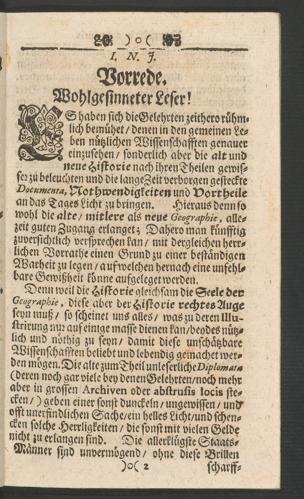 )o(
I. N. J.
Vorrede.
Wohlgesinneter Leser!
ES haben sich die Gelehrten zeithero rühm-
lich bemühet / denen in den gemeinen Le-
ben nützlichen Wissenschafften genauer
einzusehen / sonderlich aber die alt und
neue Historie nach ihren Theilen gewis-
ser zu beleuchten und die lange Zeit verborgen gesteckte
Documenta, Nothwendigkeiten und Vortheile
an das Tages Licht zu bringen. Hieraus denn so
wohl die alte / mitlere als neue Geographie, alle-
zeit guten Zugang erlanget; Dahero man künfftig
zuversichtlich versprechen kan / mit dergleichen herr-
lichen Vorrathe einen Grund zu einer beständigen
Warheit zu legen / auf welchen hernach eine unfehl-
bare Gewißheit könne aufgeleget werden.
Denn weil die Historie gleichsam die Seele der
Geographie, diese aber der Historie rechtes Auge
seyn muß / so scheinet uns alles / was zu deren Illu-
strirung nur auf einige masse dienen kan / beydes nütz-
lich und nöthig zu seyn / damit diese unschätzbare
Wissenschafften beliebt und lebendig gemachet wer-
den mögen. Die alte zum Theil unleserliche Diplomata
(deren noch gar viele bey denen Gelehrten / noch mehr
aber in grossen Archiven oder abstrusis locis ste-
cken /) geben einer sonst dunckeln / ungewissen / und
offt unerfindlichen Sache / ein helles Licht / und schen-
cken solche Herrligkeiten / die sonst mit vielen Gelde
nicht zu erlangen sind. Die allerklügste Staats-
Männer sind unvermögend / ohne diese Brillen
)o( 2 scharff-